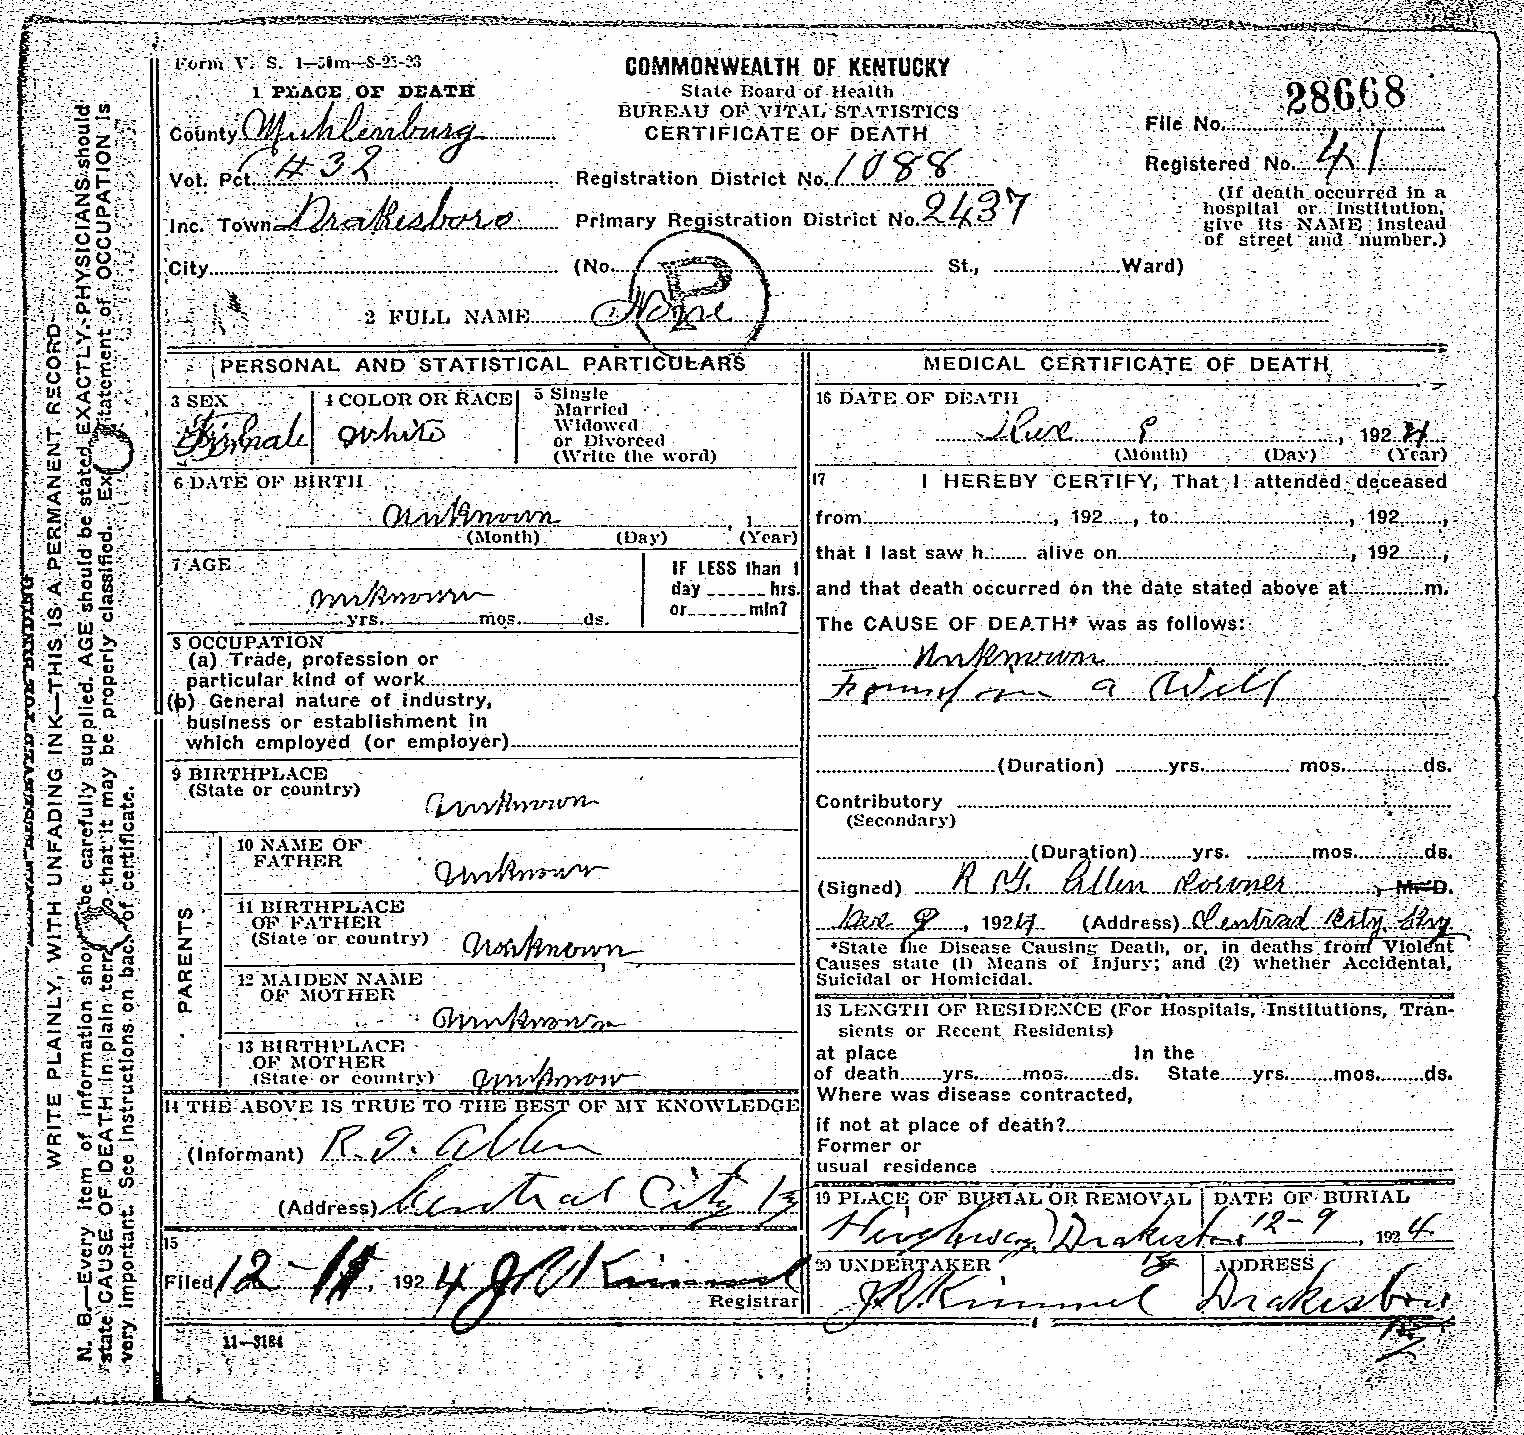 Form V. S. 1—50m—8-25-23
COMMONWEALTH OF KENTUCKY
State Board of Health
BUREAU OF VITAL STATISTICS
CERTIFICATE OF DEATH
1 PLACE OF DEATH
County Muhlenburg
Vot. Pct. #32
Inc. Town Drakesboro
City
Registration District No. 1088
Primary Registration District No. 2437
(No. St., Ward)
P
28668
File No.
Registered No. 41
(If death occurred in a
hospital or Institution,
give its NAME instead
of street and number.)
2 FULL NAME None
PERSONAL AND STATISTICAL PARTICULARS
3 SEX
Fimale
4 COLOR OR RACE
white
5 Single
Married
Widowed
or Divorced
(Write the word)
6 DATE OF BIRTH
unknown , 1
(Month) (Day) (Year)
7 AGE
unknown
yrs. mos. ds.
IF LESS than 1
day hrs.
or min?
8 OCCUPATION
(a) Trade, profession or
particular kind of work
(b) General nature of industry,
business or establishment in
which employed (or employer)
9 BIRTHPLACE
(State or country)
unknown
PARENTS
10 NAME OF
FATHER
unknown
11 BIRTHPLACE
OF FATHER
(State or country) unknown
12 MAIDEN NAME
OF MOTHER
unknown
13 BIRTHPLACE
OF MOTHER
(State or country) unknow
14 THE ABOVE IS TRUE TO THE BEST OF MY KNOWLEDGE
(Informant) R. G. Allen
(Address) Central City Ky
15
Filed 12-11, 1924 J R Kimmel
Registrar
11—3184
MEDICAL CERTIFICATE OF DEATH
16 DATE OF DEATH
Dec 9, 1924
(Month) (Day) (Year)
17 I HEREBY CERTIFY, That I attended deceased
from , 192 , to , 192 ,
that I last saw h alive on , 192 ,
and that death occurred on the date stated above at m.
The CAUSE OF DEATH* was as follows:
Unknown
Found in a Well
(Duration) yrs. mos. ds.
Contributory
(Secondary)
(Duration) yrs. mos. ds.
(Signed) R G. Allen Coroner, M. D.
Dec 9, 1924 (Address) Central City Ky
*State the Disease Causing Death, or, in deaths from Violent
Causes state (1) Means of Injury; and (2) whether Accidental,
Suicidal or Homicidal.
18 LENGTH OF RESIDENCE (For Hospitals, Institutions, Tran-
sients or Recent Residents)
at place In the
of death yrs. mos. ds. State yrs. mos. ds.
Where was disease contracted,
if not at place of death?
Former or
usual residence
19 PLACE OF BURIAL OR REMOVAL
Drakesboro Ky
DATE OF BURIAL
12-9, 1924
20 UNDERTAKER
J.R. Kimmel
ADDRESS
Drakesboro
Ky
WRITE PLAINLY, WITH UNFADING INK—THIS IS A PERMANENT RECORD
N. B.—Every item of information should be carefully supplied. AGE should be stated EXACTLY. PHYSICIANS should
state CAUSE OF DEATH in plain terms, so that it may be properly classified. Exact statement of OCCUPATION is
very important. See instructions on back of certificate.